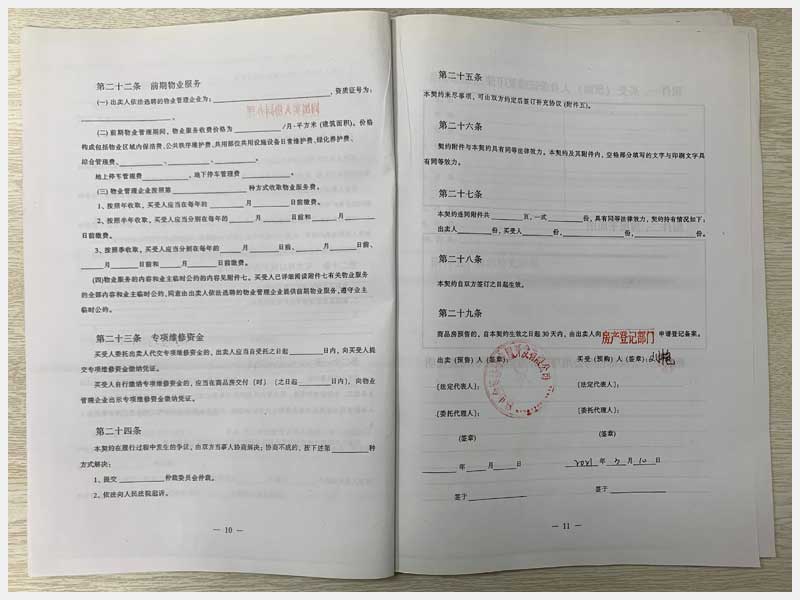 第二十二条 前期物业服务
(一) 出卖人依法选聘的物业管理企业为: ____，资质证号为:
____。
(二) 前期物业管理期间，物业服务收费价格为 ____ /月·平方米 (建筑面积)。价格
构成包括物业区域内保洁费、公共秩序维护费、共用部位共用设施设备日常维护费、绿化养护费、
综合管理费、____、____、____。
地上停车管理费 ____，地下停车管理费 ____。
(三) 物业管理企业按照第 ____ 种方式收取物业服务费。
1、按照年收取，买受人应当在每年的 ____ 月 ____ 日前缴费。
2、按照半年收取，买受人应当分别在每年的 ____ 月 ____ 日前和 ____ 月 ____
日前缴费。
3、按照季收取，买受人应当分别在每年的 ____ 月 ____ 日前、____ 月 ____ 日前、
____ 月 ____ 日前和 ____ 月 ____ 日前缴费。
(四)物业服务的内容和业主临时公约的内容见附件七。买受人已详细阅读附件七有关物业服务
的全部内容和业主临时公约，同意由出卖人依法选聘的物业管理企业提供前期物业服务，遵守业主
临时公约。
第二十三条 专项维修资金
买受人委托出卖人代交专项维修资金的，出卖人应当自受托之日起 ____ 日内，向买受人提
交专项维修资金缴纳凭证。
买受人自行缴纳专项维修资金的，应当在商品房交付〔时〕〔之日起 ____ 日内〕，向物业
管理企业出示专项维修资金缴纳凭证。
第二十四条
本契约在履行过程中发生的争议，由双方当事人协商解决；协商不成的，按下述第 ____ 种
方式解决:
1、提交 ____ 仲裁委员会仲裁。
2、依法向人民法院起诉。
— 10 —
第二十五条
本契约未尽事项，可由双方约定后签订补充协议 (附件五)。
第二十六条
契约附件与本契约具有同等法律效力。本契约及其附件内，空格部分填写的文字与印刷文字具
有同等效力。
第二十七条
本契约连同附件共 ____ 页，一式 ____ 份，具有同等法律效力，契约持有情况如下:
出卖人 ____ 份，买受人 ____ 份，____ 份，____ 份。
第二十八条
本契约自双方签订之日起生效。
第二十九条
商品房预售的，自本契约生效之日起 30 天内，由出卖人向 房产登记部门 申请登记备案。
出卖 (预售) 人 (签章): 买受 (预购) 人 (签章):
〔法定代表人〕: 〔法定代表人〕:
〔委托代理人〕: 〔委托代理人〕:
(签章) (签章)
____ 年 ____ 月 ____ 日 2021 年 月 10 日
签于 ____ 签于 ____
— 11 —